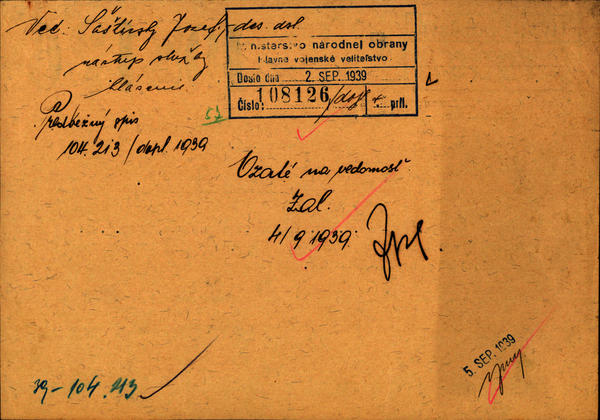 Vec: Šaštínsky Jozef, des. dsl.
nástup služby
hlásenie
Predbežný spis
104.213/dopl. 1939
Ministerstvo národnej obrany
hlavné vojenské veliteľstvo
Došlo dňa 2. SEP. 1939
Číslo: 108126/dopl príl.
57
Vzaté na vedomosť.
Zal.
4/9 1939.
5. SEP. 1939
39-104.213